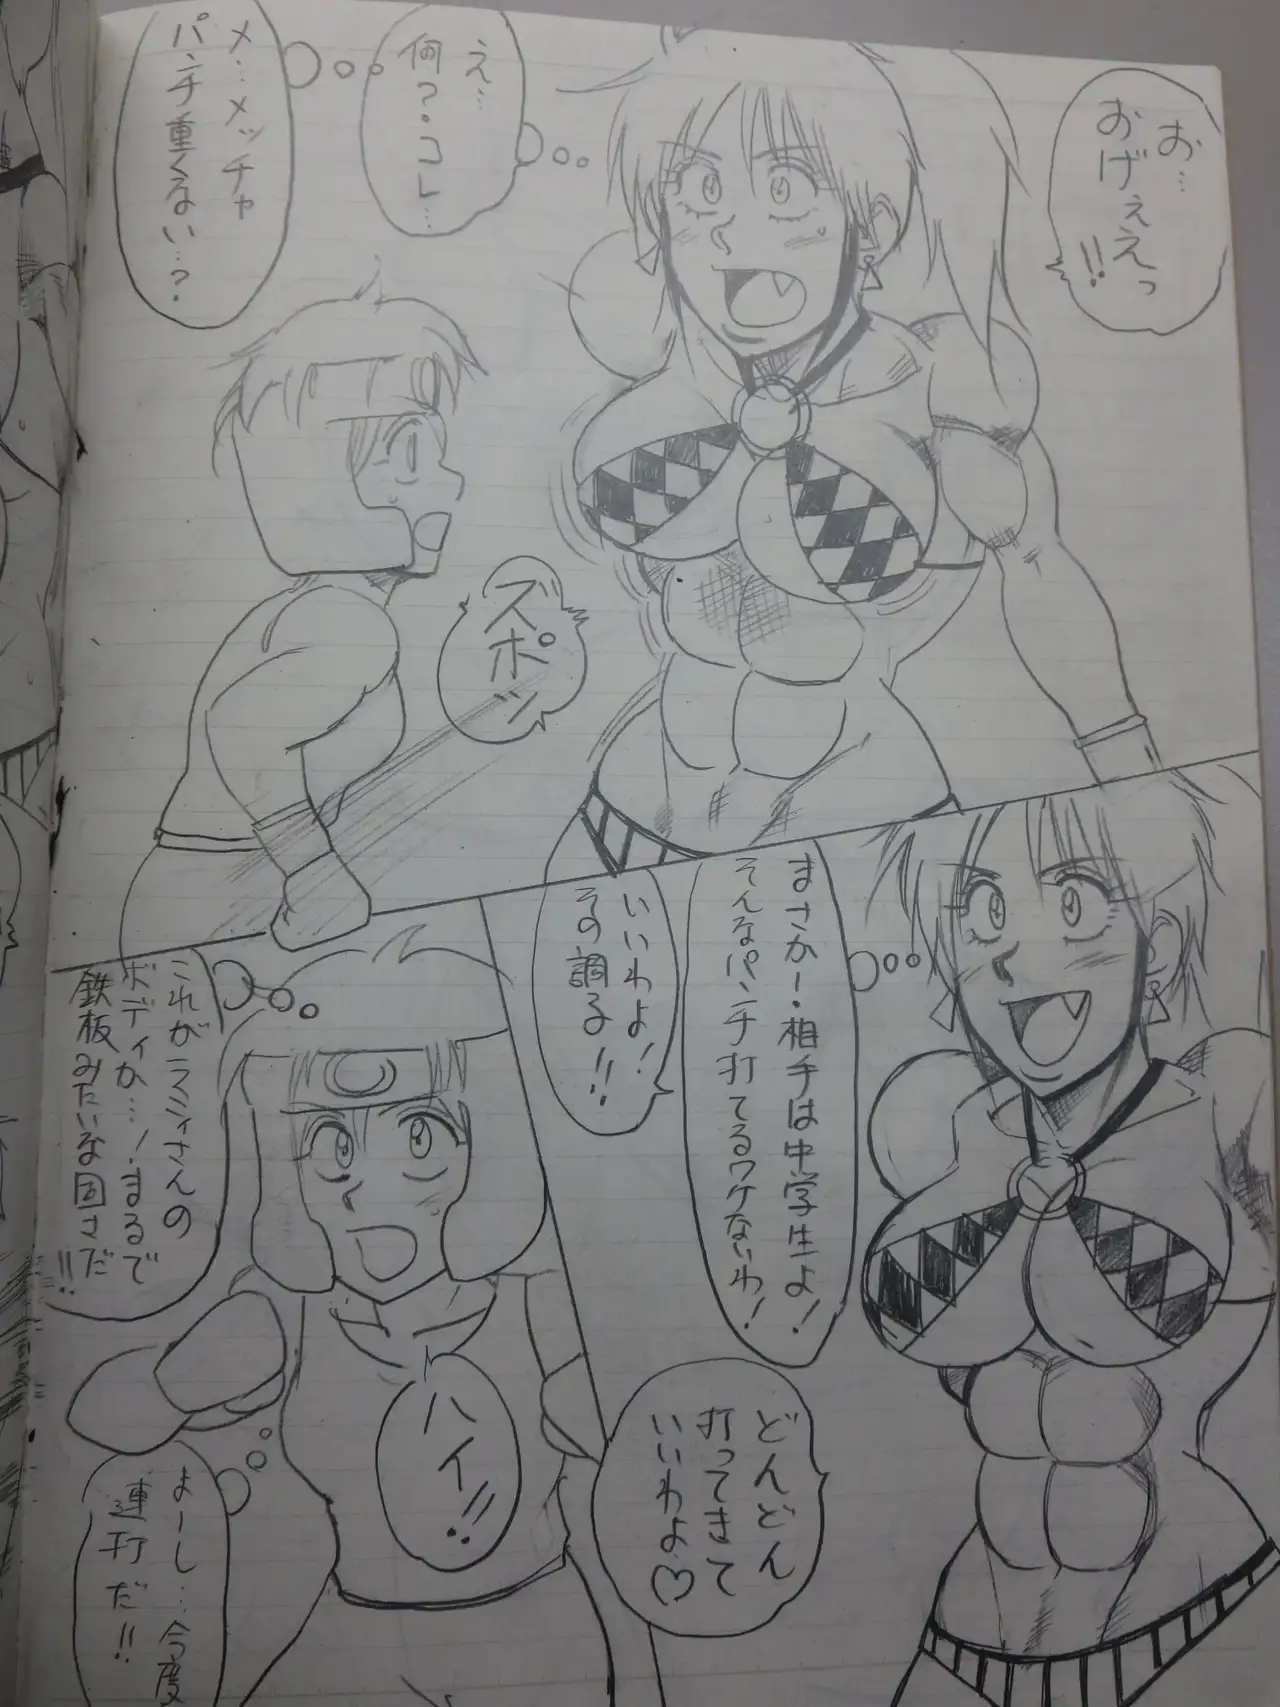 お…
おげぇえっ
!!
え…
何?コレ…
メ…メッチャ
パンチ重くない…?
ズポッ
まさかー・相手は中学生よ!
そんなパンチ打てるワケないわ!
いいわよ!
その調子!!
どんどん
打ってきて
いいわよ♡
これがラミィさんの
ボディか…!まるで
鉄板みたいな固さだ!!
ハイ!!
よーし…今度
連打だ!!